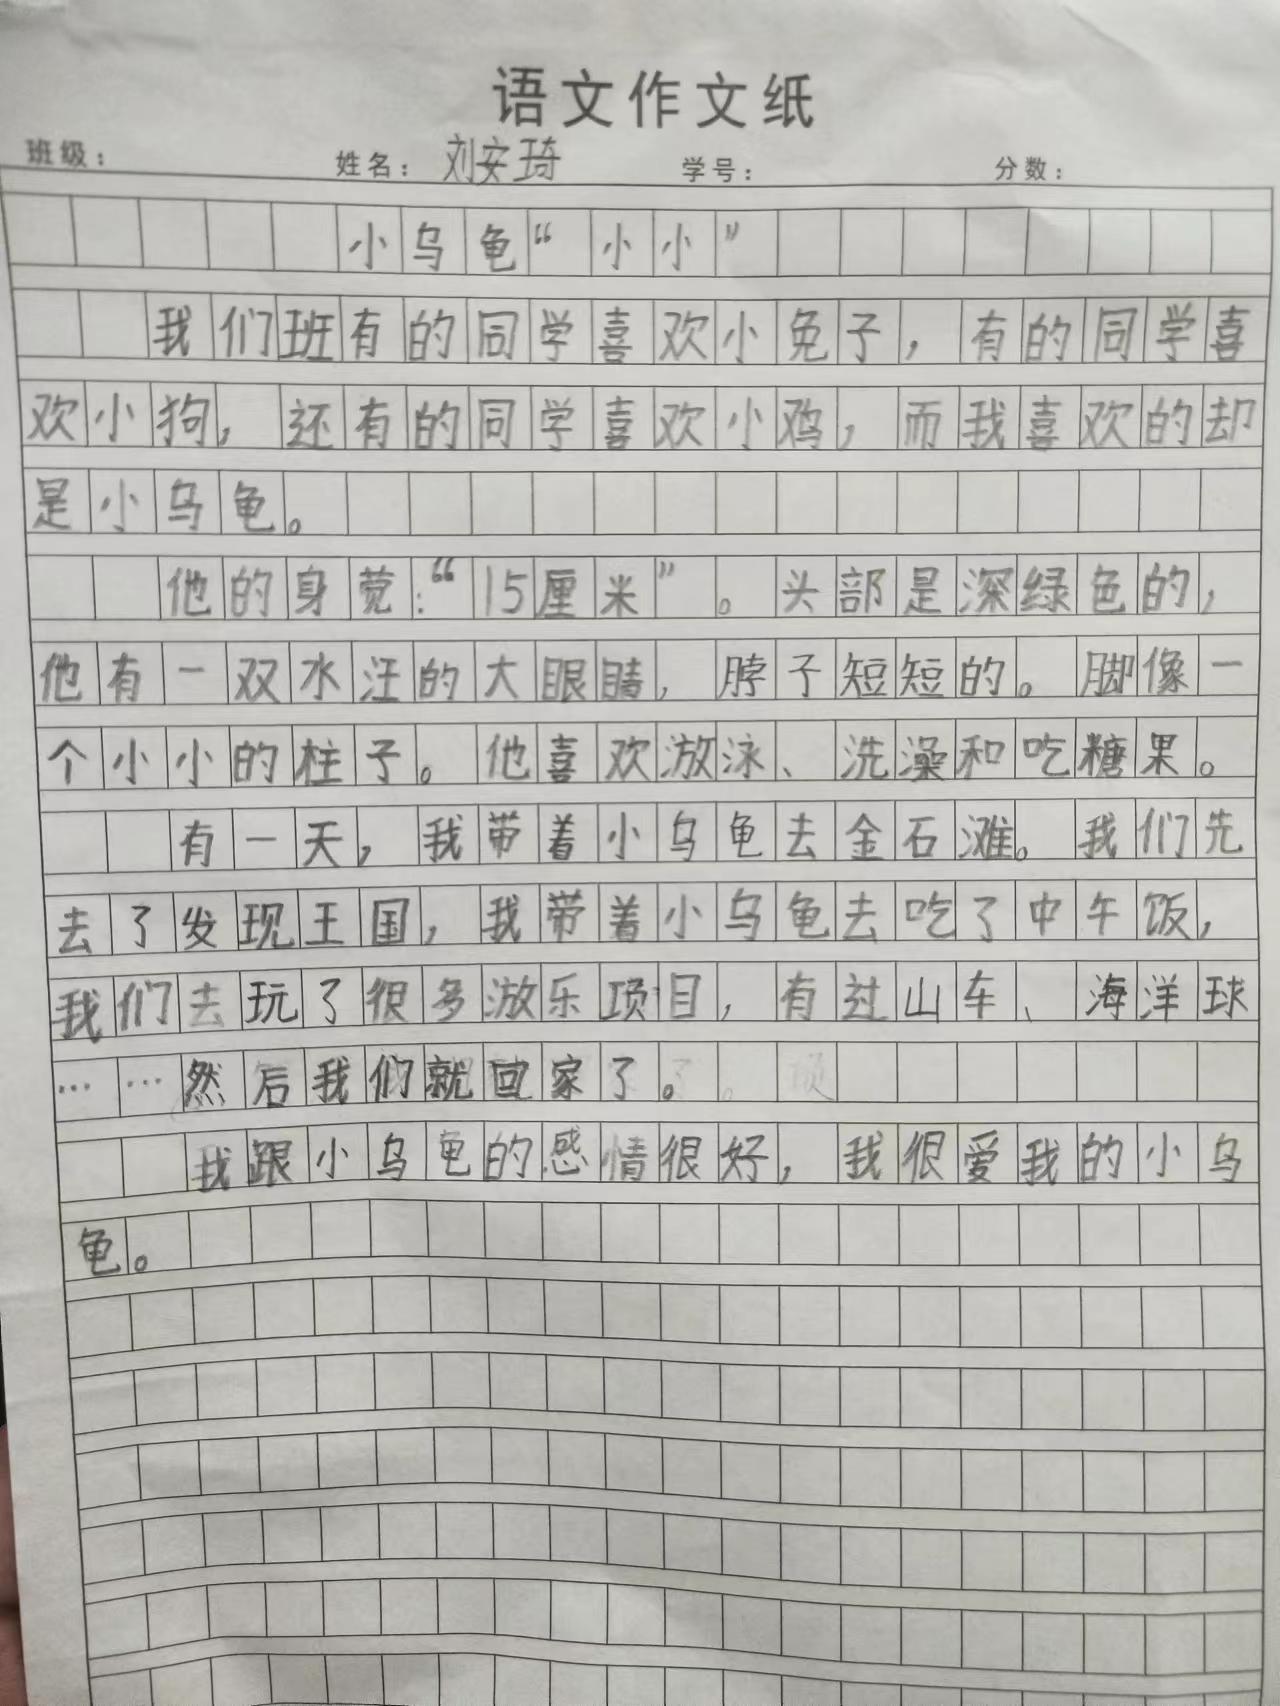 语文作文纸
班级： 姓名：刘安琦 学号： 分数：
小乌龟“小小”
我们班有的同学喜欢小兔子，有的同学喜
欢小狗，还有的同学喜欢小鸡，而我喜欢的却
是小乌龟。
他的身宽：“15厘米”。头部是深绿色的，
他有一双水汪的大眼睛，脖子短短的。脚像一
个小小的柱子。他喜欢游泳、洗澡和吃糖果。
有一天，我带着小乌龟去金石滩。我们先
去了发现王国，我带着小乌龟去吃了中午饭，
我们去玩了很多游乐项目，有过山车、海洋球
……然后我们就回家了。
我跟小乌龟的感情很好，我很爱我的小乌
龟。